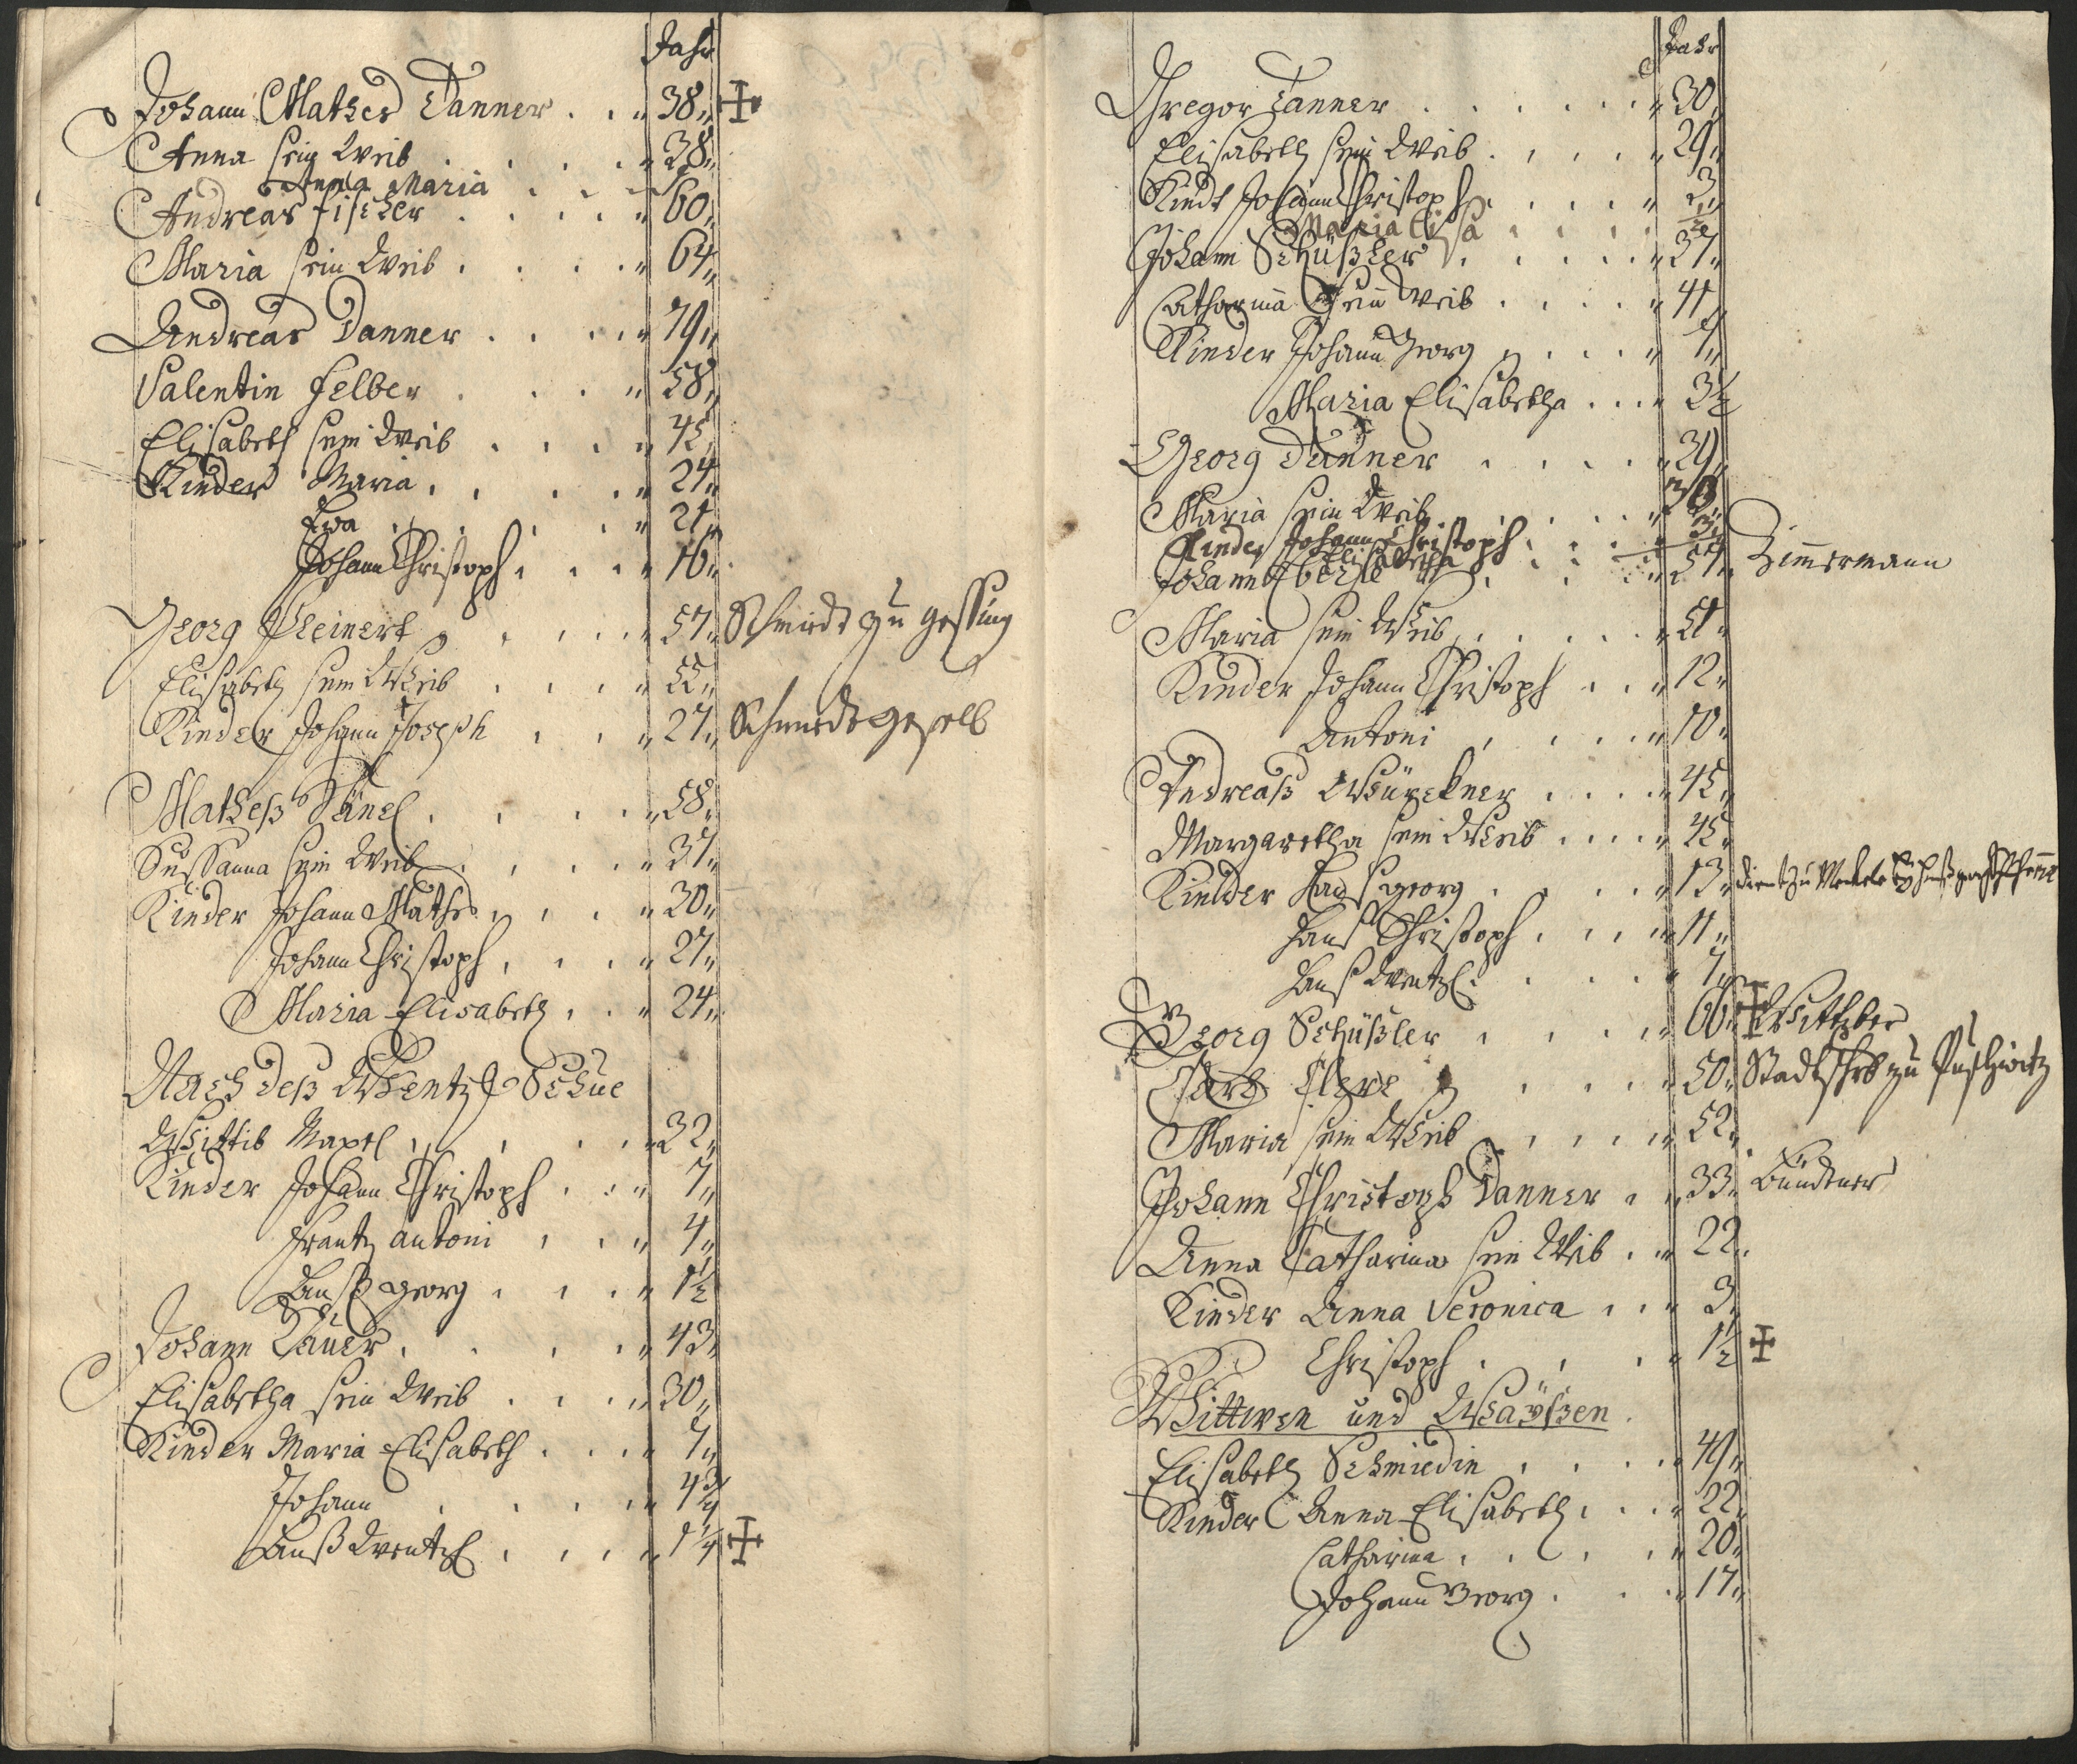 Jahr
Johann Mathes Danner . . " 38 "
Anna sein Weib . . . . " 38 "
Anna Maria
Andreas Fischer . . . . " 60 "
Maria sein Weib . . . . " 64 "
Andreas Danner . . . . " 79 "
Valentin Felber . . . " 58 "
Elisabeth sein Weib . . . . " 45 "
Kinder Maria . . . . " 24 "
Eva . . . . " 21 "
Johann Christoph . . . " 16 "
Georg Kleinert . . . . " 57 " Schmidt zu gessing
Elisabeth sein Weib . . . . " 55 "
Kinder Johann Joseph . . . " 27 " Schmidt gesell
Matheß Hänel . . . . " 58 "
Sussanna sein Weib . . . . " 57 "
Kinder Johann Mathes . . . " 30 "
Johann Christoph . . . " 27 "
Maria Elisabeth . . . " 24 "
Nach deß Wentzl Schue
Wittib . . . . " 32 "
Kinder Johann Christoph . . . " 7 "
Frantz Antoni . . . " 4 "
Hanß Georg . . . . " 1 1/2
Johann . . . . " 43 "
Elisabetha sein Weib . . . . " 30 "
Kinder Maria Elisabeth . . . " 7 "
Johann . . . . " 4 3/4
Hanß Wentzl . . . . " 1 1/4
Jahr
Gregor Tanner . . . . . . " 30 "
Elisabeth sein Weib . . . . " 29 "
Kindt Johann Christoph . . . . " 3 "
Maria Elisa . . . .
Johann Schüßler . . . . . " 37 "
Catharina sein Weib . . . . " 41
Kinder Johann Georg . . . . " 7 "
Maria Elisabetha . . . " 3 1/2
Georg Danner . . . . " 39 "
Maria sein Weib . . . . " 36
Kinder Johann Christoph . . . " 3 "
Elisabetha
Johann . . . . " 57 " Zimmermann
Maria sein Weib . . . . . " 51 "
Kinder Johann Christoph . . . " 12 "
Antoni . . . . " 10 "
Andreaß Würckner . . . . " 45 "
Margaretha sein Weib . . . . " 45 "
Kinder Hanß georg . . . . " 13 " dient zu
Hanß Christoph . . . . " 11 "
Hanß Wentzl . . . . " 7 "
Georg Schüßler . . . . " 66 " Wittber
. . . . " 50 " Stadtschrb zu
Maria sein Weib . . . . . " 52 "
Johann Christoph Danner . " 33 " Bündtner
Anna Catharina sein Weib . . " 22 .
Kinder Anna Veronica . . . " 3 "
Christoph . . . " 1 1/2
Wittwen und Waÿßen .
Elisabeth Schmiedin . . . . " 49 "
Kinder Anna Elisabeth . . . " 22 "
Catharina . . . . . " 20 "
Johann Georg . . . . " 17 "